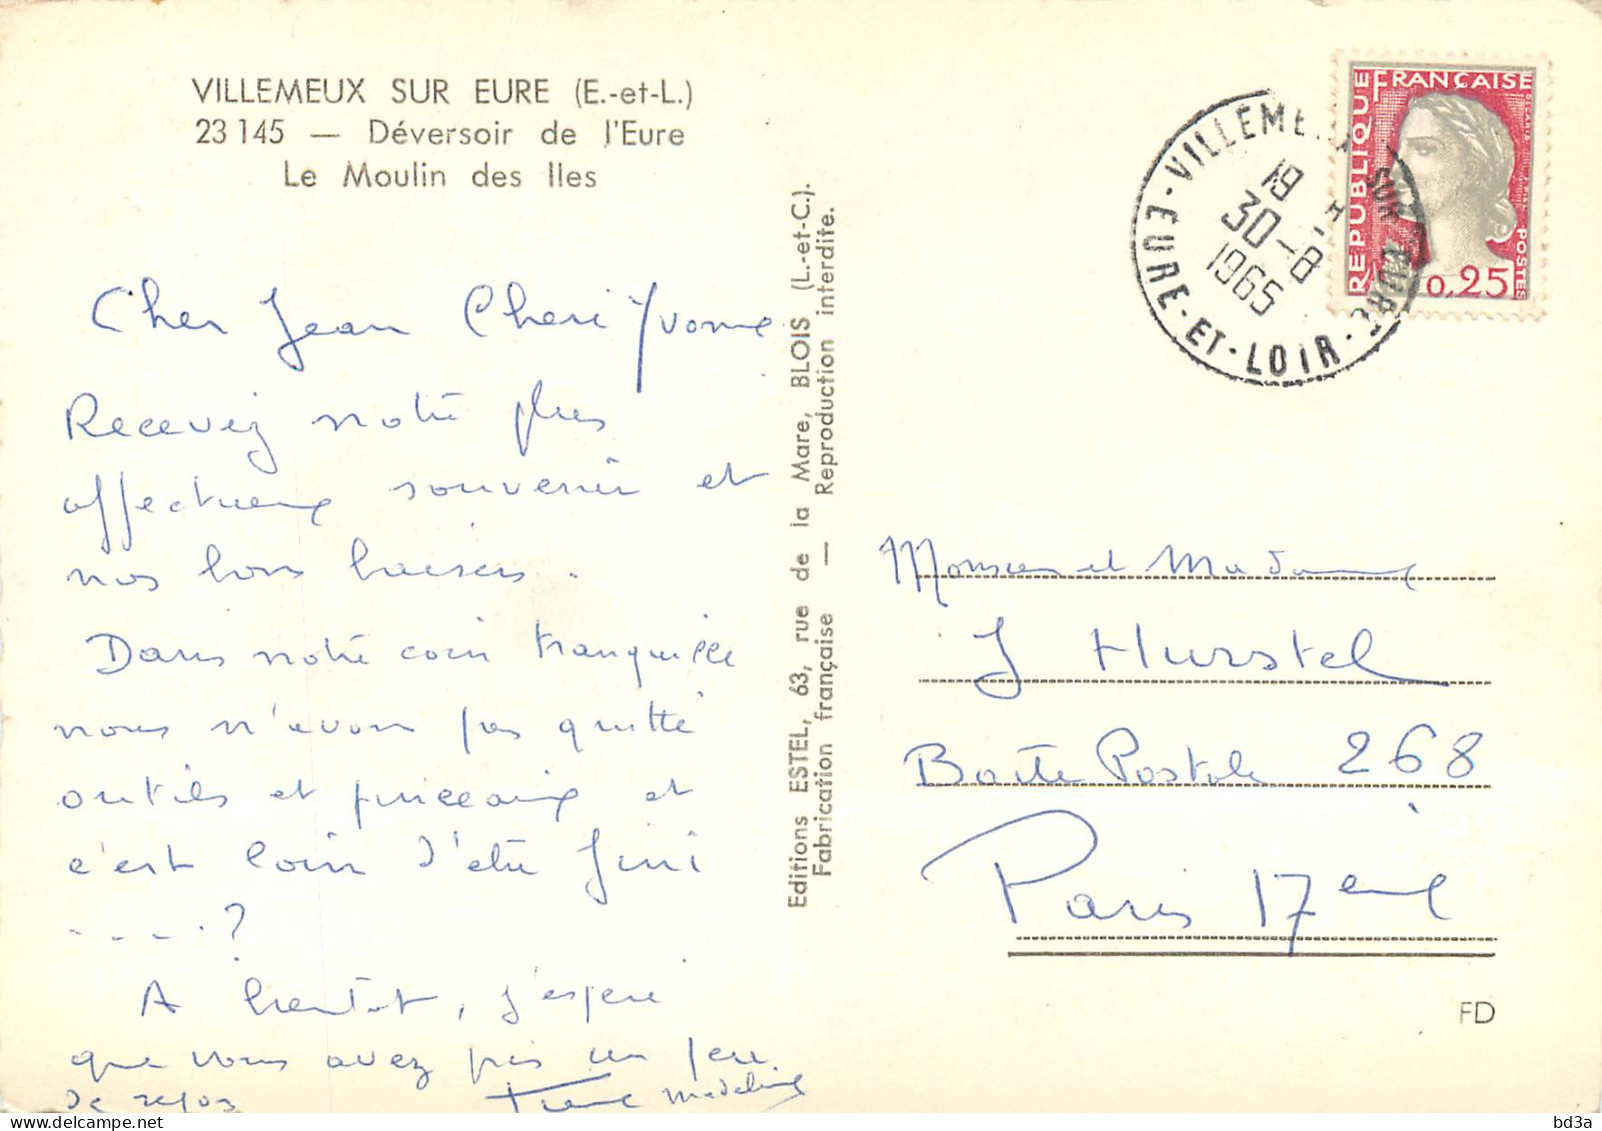 VILLEMEUX SUR EURE (E.-et-L.)
23 145 — Déversoir de l'Eure
Le Moulin des Iles
Cher Jean Cheri Yvonne
Recevez notre plus
affectueux souvenir et
nos bons baisers.
Dans notre coin tranquille
nous n'avons pas quitté
outils et pinceaux et
c'est loin d'être fini
- - - - . ?
A bientot, j'espère
que vous avez pris un peu
de repos
Pierre Madeleine
Editions ESTEL, 63, rue de la Mare, BLOIS (L.-et-C.).
Fabrication française — Reproduction interdite.
VILLEMEUX SUR EURE
19 H
30-8
1965
EURE-ET-LOIR
REPUBLIQUE
FRANÇAISE
POSTES
0,25
Monsieur et Madame
J Hurstel
Boîte Postale 268
Paris 17eme
FD
delcampe.net
bd3a